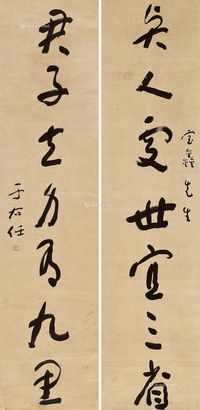 宝鑫先生
人處世宜三省
君子立身有九思
于右任